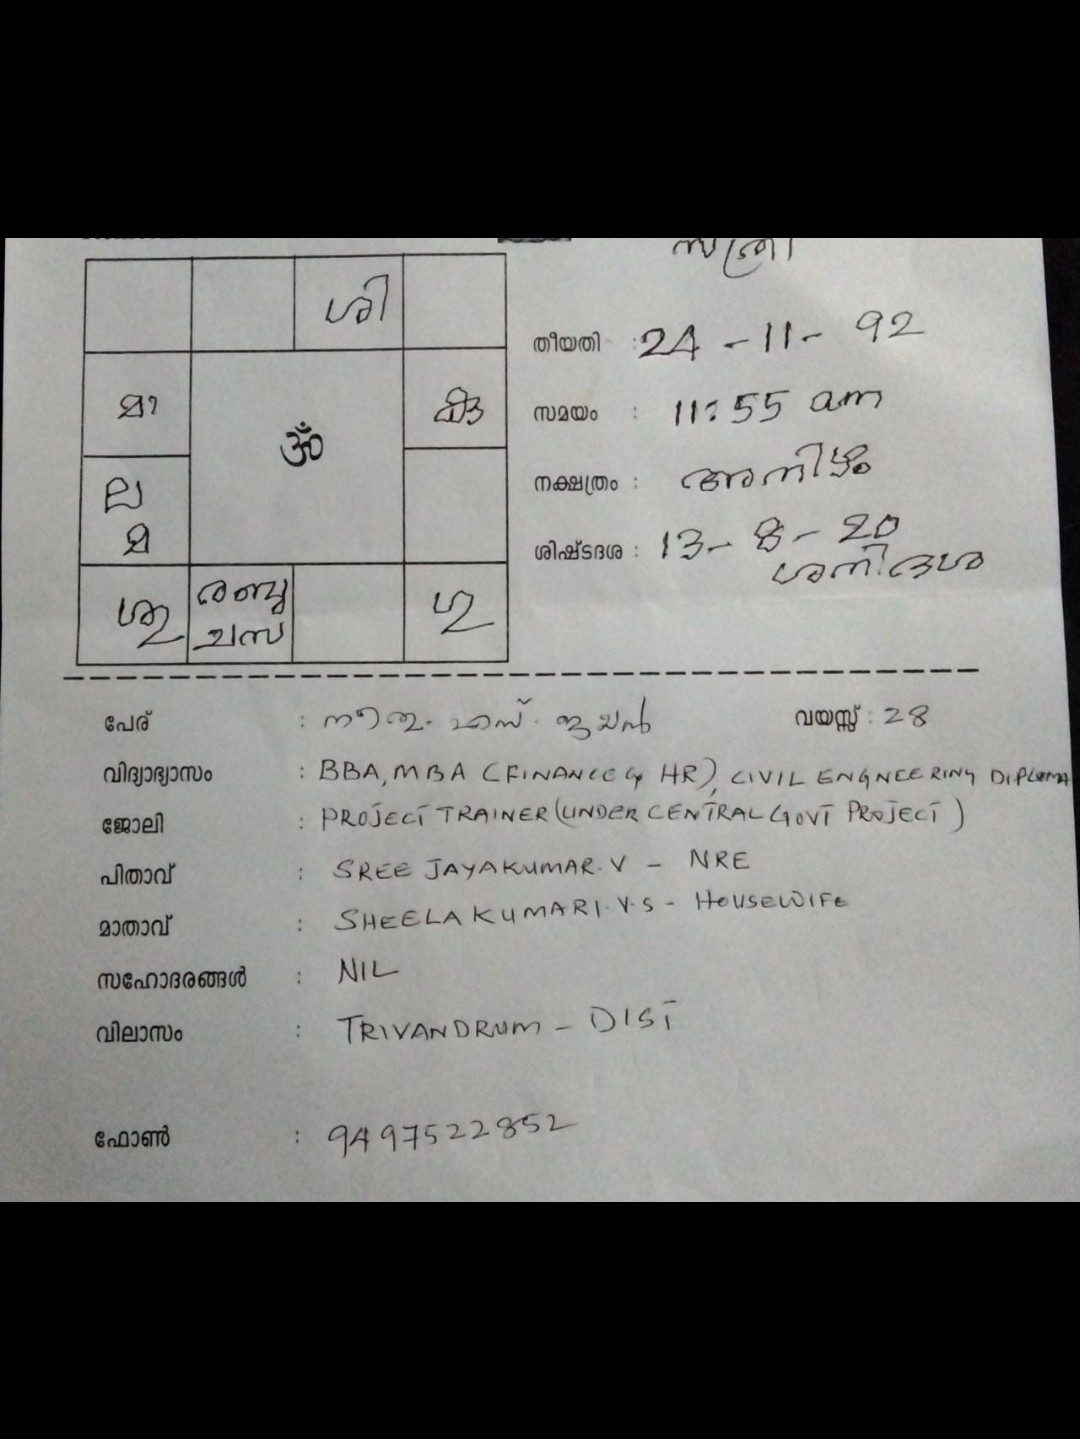 സ്ത്രീ
ശി
മാ
കു
ॐ
ല
മ
ശു
ര ബു
ച സ
ഗു
തീയതി : 24 - 11 - 92
സമയം : 11:55 am
നക്ഷത്രം : അനിഴം
ശിഷ്ടദശ : 13 - 8 - 20
ശനി ദശ
പേര് : എസ്. ജയൻ വയസ്സ് : 28
വിദ്യാഭ്യാസം : BBA, MBA (FINANCE & HR), CIVIL ENGNEERING DIPLOMA
ജോലി : PROJECT TRAINER (UNDER CENTRAL GOVT PROJECT)
പിതാവ് : SREE JAYAKUMAR.V - NRE
മാതാവ് : SHEELA KUMARI.V.S - HOUSEWIFE
സഹോദരങ്ങൾ : NIL
വിലാസം : TRIVANDRUM - DIST
ഫോൺ : 9497522852